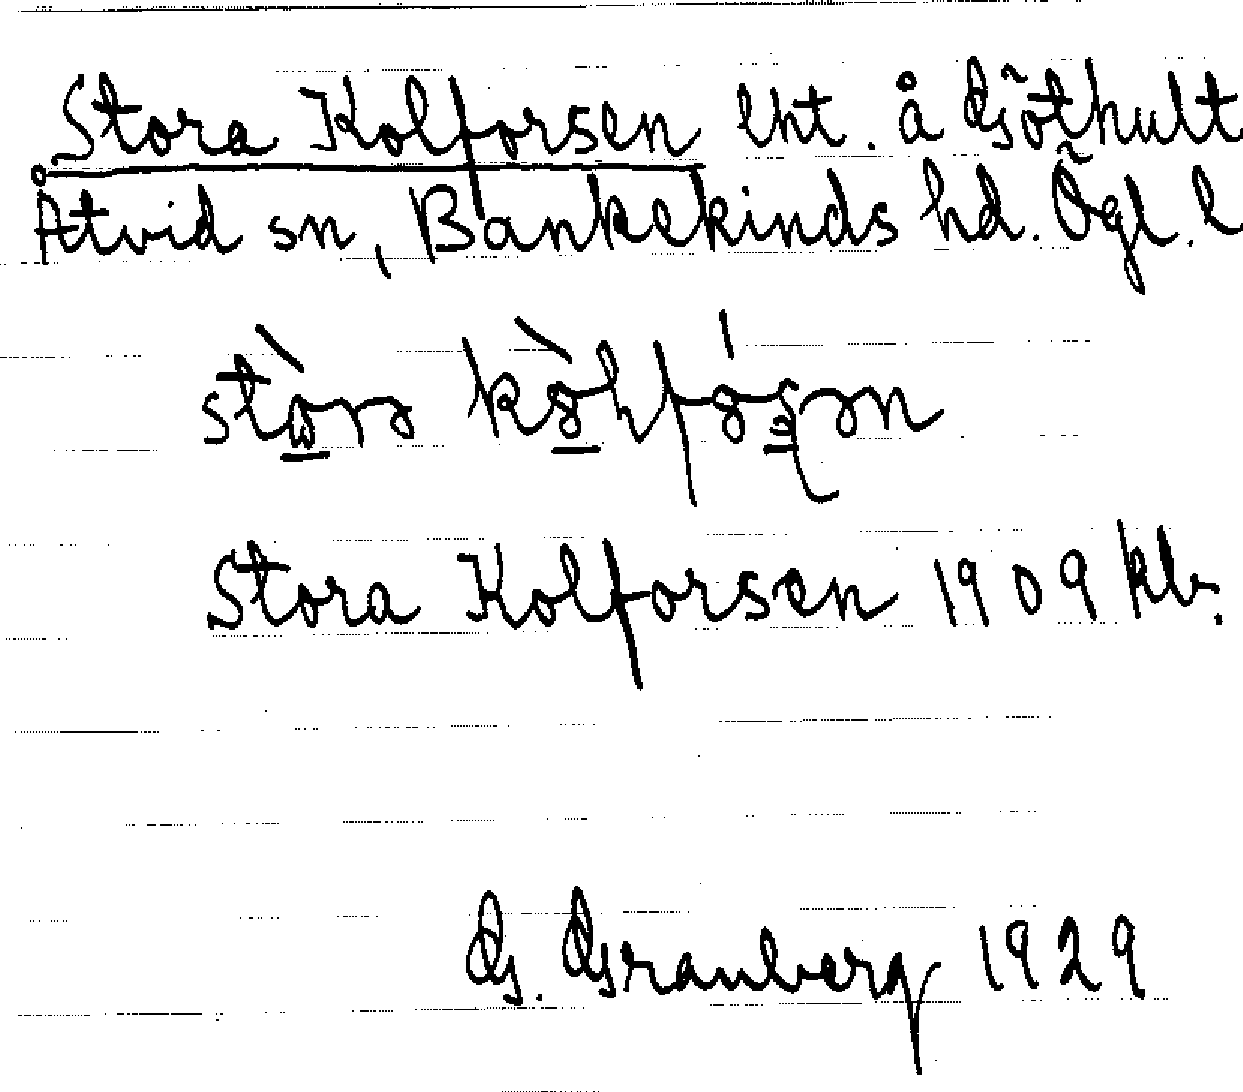 Stora Kolforsen lht. å Göthult
Åtvid sn, Bankekinds hd. Ögl. l
Stora Kolforsen 1909 kb.
G. Granberg 1929